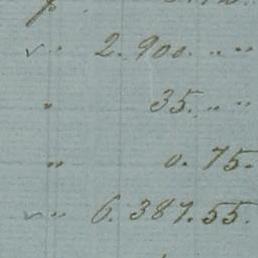 ✓ " 2.900. " "
" 35. " "
" 0.75.
✓ " 6.387.55.